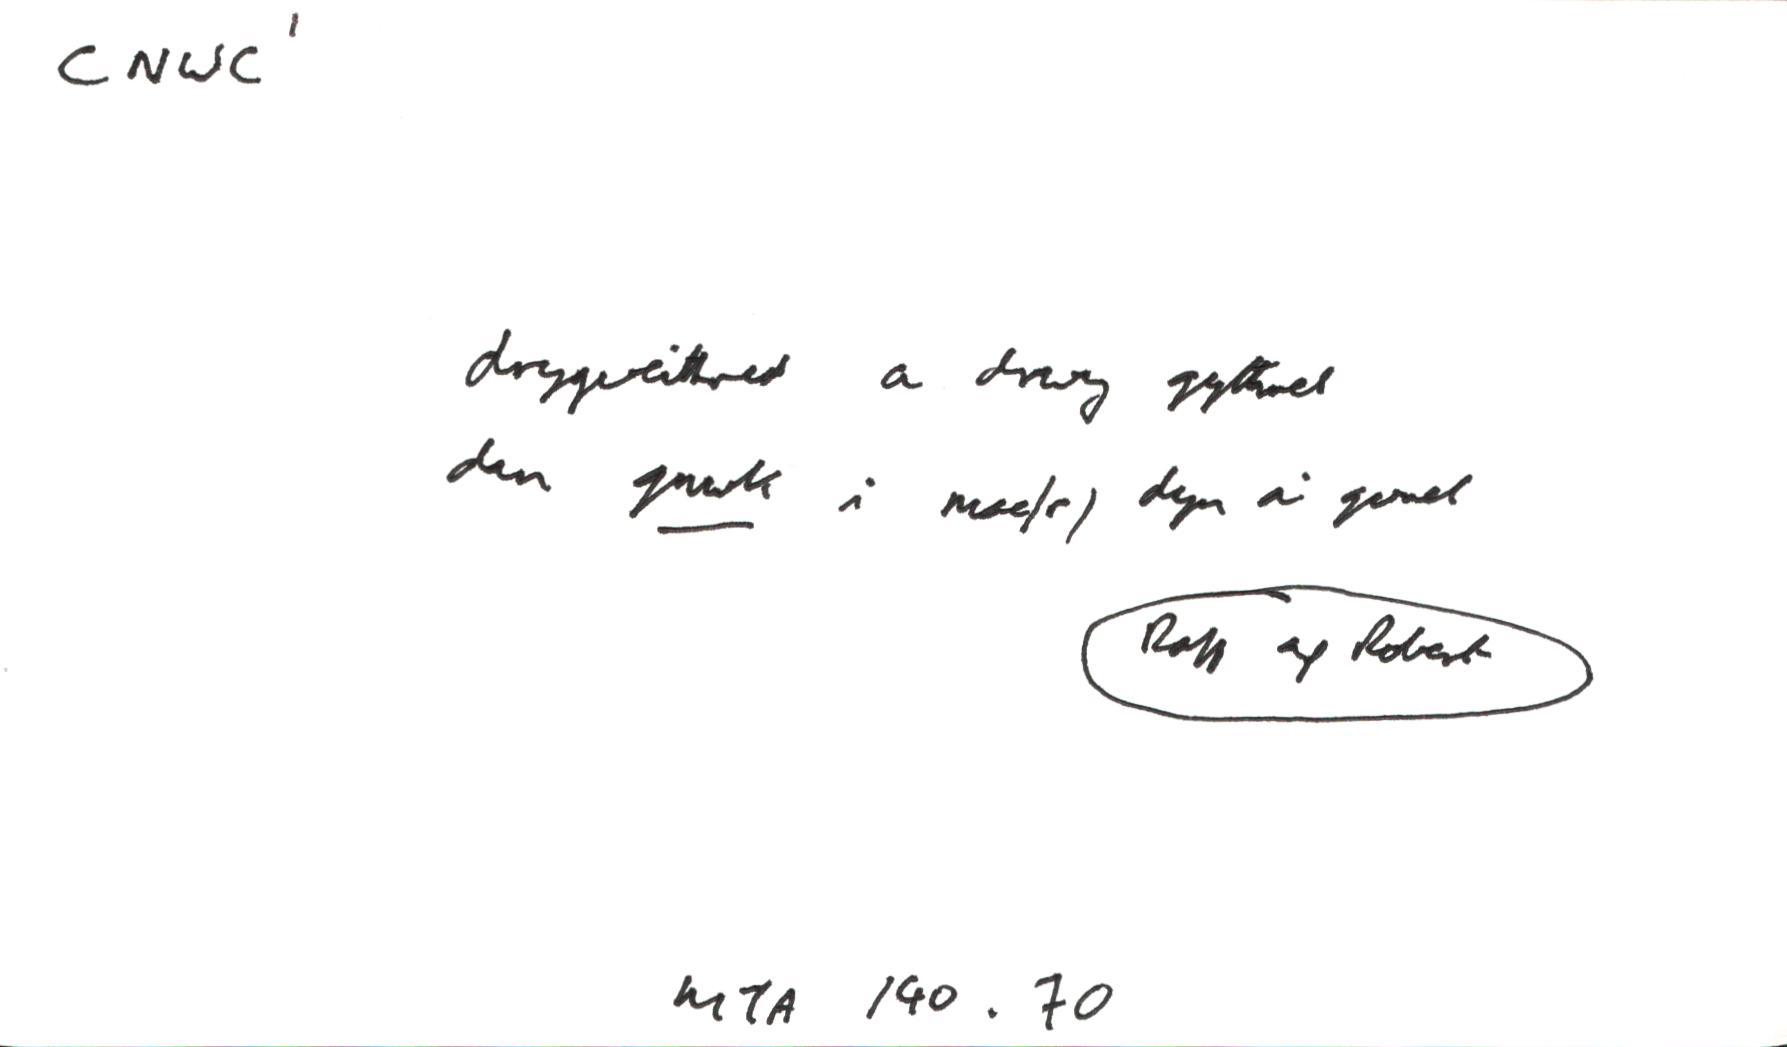 CNWC¹
drygweithred a drwg gythrel
dan gnwk i mae/r/ dyn ai gwnel
Raff ap Robert
MTA 140.70